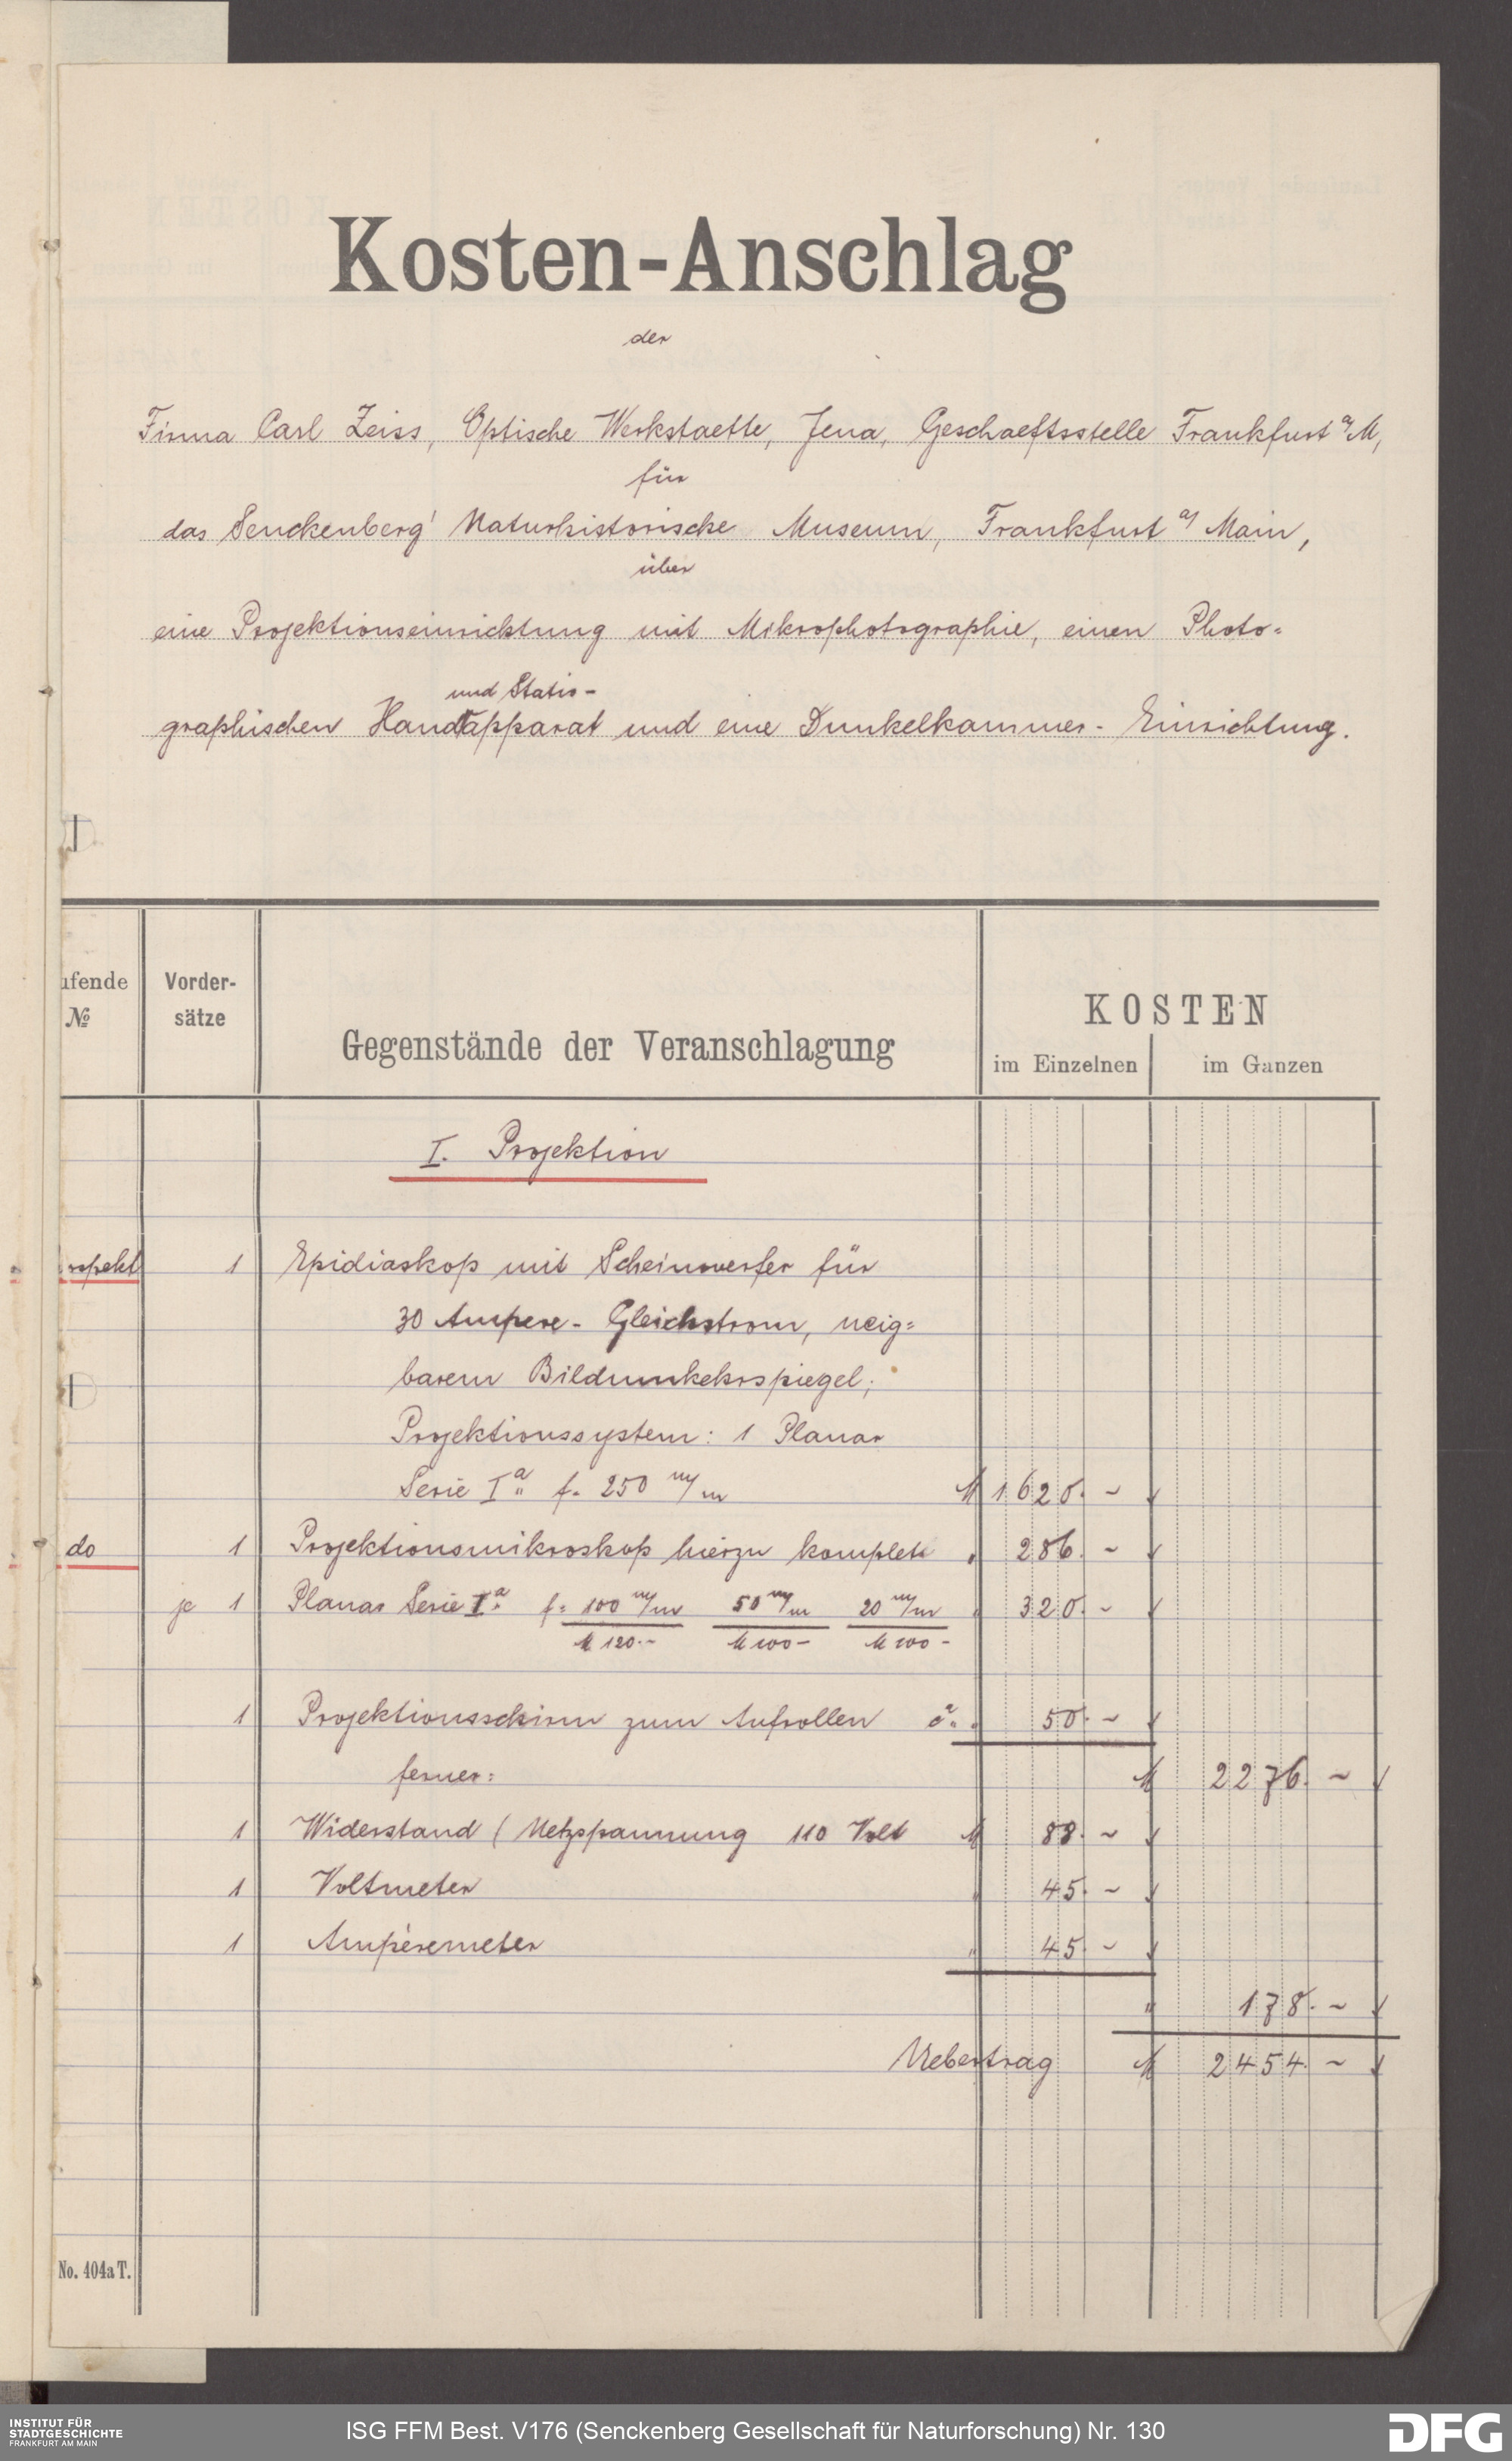 Kosten-Anschlag
der
Firma Carl Zeiss, Optische Werkstaette, Jena, Geschaeftsstelle Frankfurt a/M,
für
das Senckenberg' Naturhistorische Museum, Frankfurt a/ Main,
über
eine Projektionseinrichtung mit Mikrophotographie, einen Photo-
und Stativ-
graphischen Handapparat und eine Dunkelkammer-Einrichtung.
ufende Vorder-
№ sätze
Gegenstände der Veranschlagung
KOSTEN
im Einzelnen im Ganzen
I. Projektion
rospekt 1 Epidiaskop mit Scheinwerfer für
30 Ampere-Gleichstrom, neig=
barem Bildumkehrspiegel;
Projektionssystem: 1 Planar
Serie Ia f. 250 m/m M 1620.-
do 1 Projektionsmikroskop hierzu komplett " 286.-
je 1 Planar Serie Ia f= 100 m/m 50 m/m 20 m/m " 320.-
M 120.- M 100.- M 100.-
1 Projektionsschirm zum Aufrollen ca. " 50.-
ferner: M 2276.-
1 Widerstand (Netzspannung 110 Volt M 88.-
1 Voltmeter " 45.-
1 Ampèremeter " 45.-
" 178.-
Uebertrag M 2454.-
No. 404a T.
INSTITUT FÜR
STADTGESCHICHTE
FRANKFURT AM MAIN
ISG FFM Best. V176 (Senckenberg Gesellschaft für Naturforschung) Nr. 130
DFG